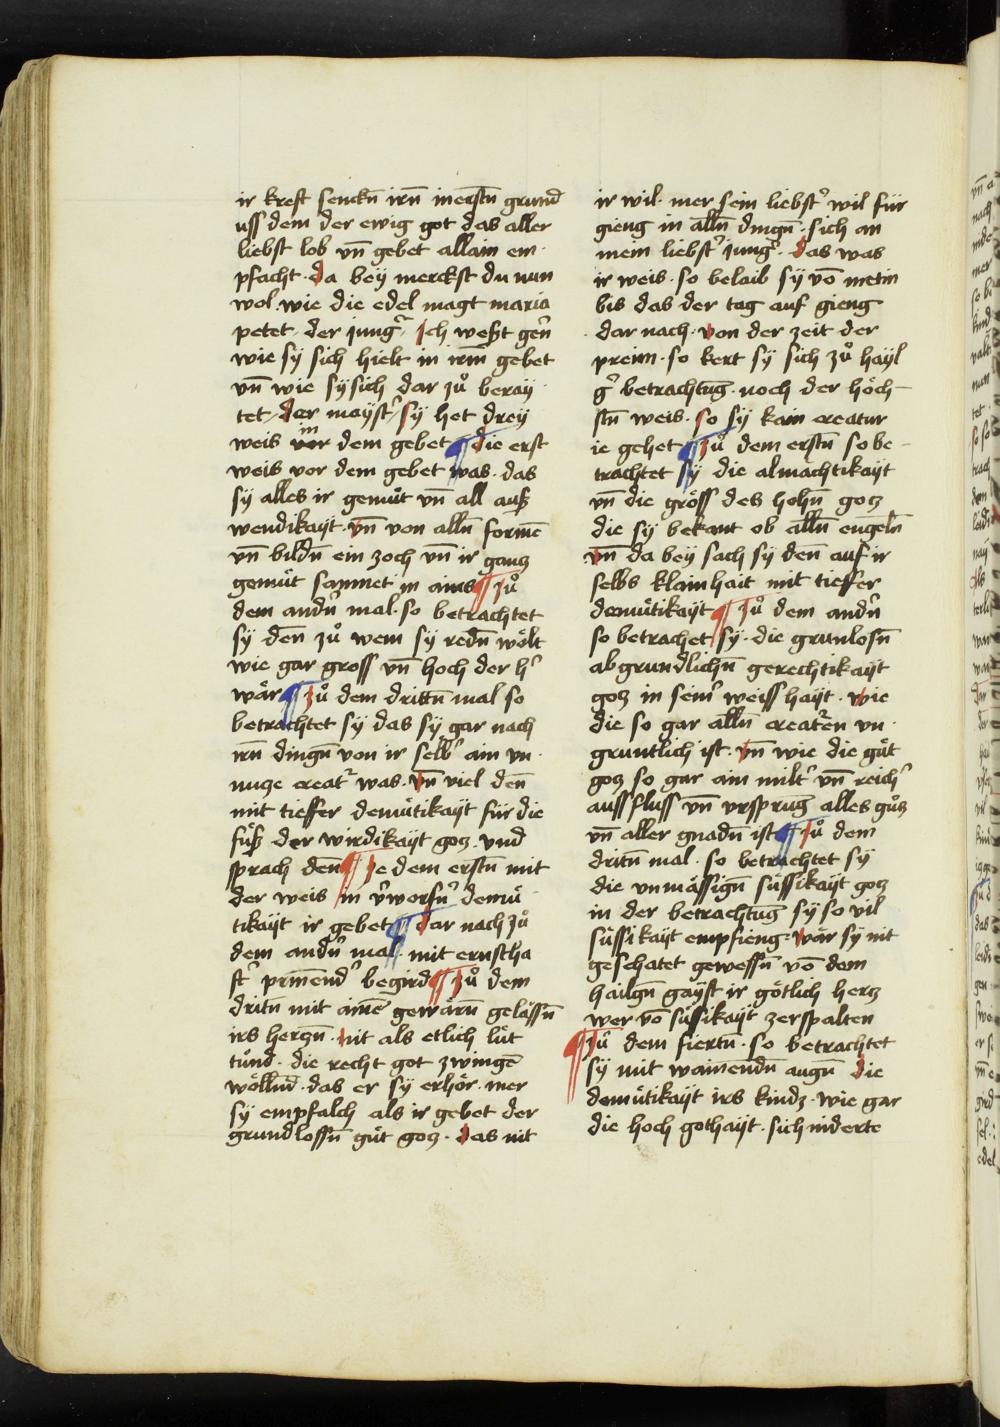 ir kreft senckn̄ irn̄ in erstn̄ grund
uss dem der ewig got das aller
liebst lob vn̄ gebet allain em
pfacht · da bey merckst du nun
wol · wie die edel magt maria
petet · der jung᷑ · Ich weßt gern̄
wie sy sich hielt in irm̄ gebet
vn̄ wie sy sich dar zů beray
tet · der mayst᷑ · sy het drey
weis vor dem gebet ¶ die erst
weis vor dem gebet was · das
sy alles ir gemüt vn̄ all auß
wendikayt · vn̄ von alln̄ formē
vn̄ bildn̄ ein zoch vn̄ ir gantz
gemüt sammet in ains ¶ zů
dem andn̄ mal · so betrachtet
sy den̄ zů wem sy redn̄ wölt
wie gar gross vn̄ hoch der h᷑
wär ¶ zů dem drittn̄ mal so
betrachtet sy das sy gar nach
irn̄ dingn̄ von ir selb᷑ ain vn
nuze creat᷑ was · vn̄ viel den̄
mit tieffer demütikayt für die
füß der wirdikayt gotz · vnd
sprach den̄ ¶ Ze dem erstn̄ mit
der weis in v᷑worfn᷑ demü
tikayt ir gebet ¶ dar nach zů
dem andn᷑ mal · mit ernstha
ft᷑ prinēnd᷑ begird ¶ zů dem
dritn̄ mit ainē gewärn̄ gelässn̄
irs hertzn̄ · nit als etlich lüt
tůnd · die recht got zwingē
wöllnd · das er sy erhör · mer
sy empfalch als ir gebet der
grundlossn̄ güt gotz · das nit
ir wil · mer sein liebst᷑ wil für
gieng in alln̄ dingn̄ · sich an
mein liebst᷑ jung᷑ · das was
ir weis · so belaib sy vō metin
bis das der tag auf gieng
dar nach · von der zeit der
preim · so kert sy sich zů hayl
g᷑ betrachtūg · noch der höch
stn̄ weis · so sy kain creatur
ie gehet ¶ zů dem erstn̄ so be
trachtet sy die almachtikayt
vn̄ die gröss des hohn̄ gotz
die sy bekant ob alln̄ engeln̄
vn̄ da bey sach sy den̄ auf ir
selbs klainhait mit tieffer
demütikayt ¶ zů dem andn̄
so betrachet sy · die grunlosn̄
abgrundlichn̄ gerechtikayt
gotz in sein᷑ weisshayt · wie
die so gar alln̄ creat᷑en vn
gruntlich ist · vn̄ wie die güt
gotz so gar ain milt᷑ vn̄ reich᷑
aussfluss vn̄ vrsprūg alles gůtz
vn̄ aller gnadn̄ ist ¶ zů dem
dritn̄ mal · so betrachtet sy
die vnmässign̄ süssikayt gotz
in der betrachtūg sy so vil
süssikayt empfieng · wär sy nit
geschatet gewessn̄ vō dem
hailgn̄ gayst ir götlich hertz
wer vō süssikayt zerspalten
¶ zů dem fiertn̄ · so betrachtet
sy mit wainendn̄ augn̄ die
demütikayt irs kindz · wie gar
die hoch gothayt · sich niderte